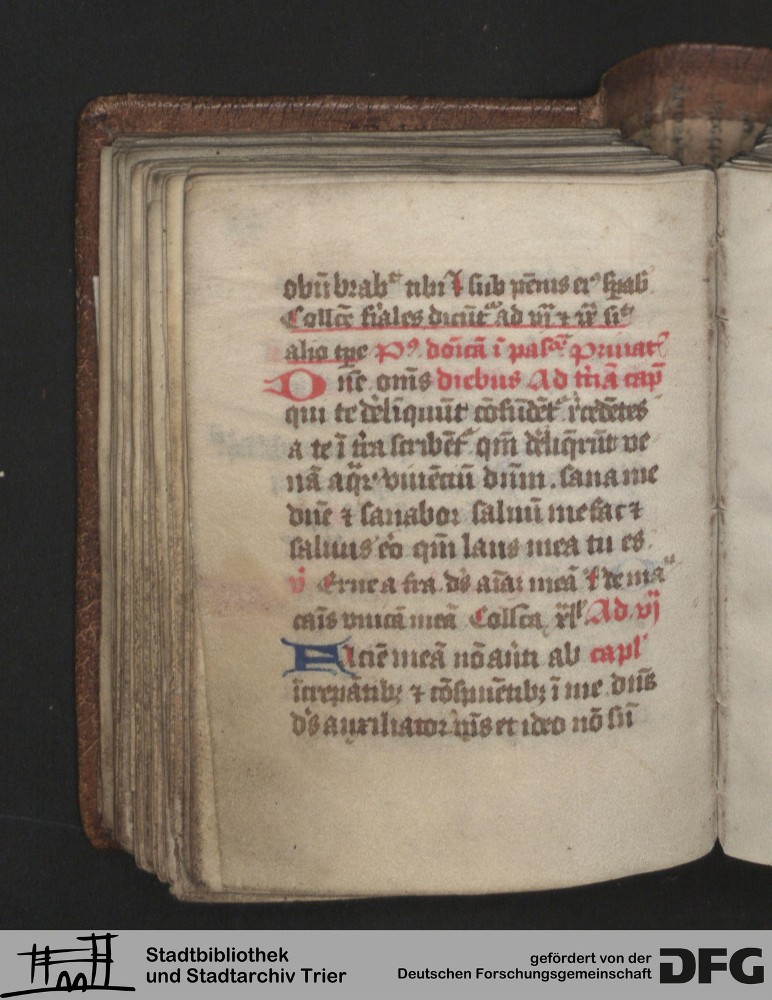 obūbrabᵗ tibi ⁊ sub pēnis eiꝰ spab
Collcē fiales dicūtᵗ ad vj ⁊ ix sic
alio tpe Pꝰ doīcā ī pasᵉ Privatꝭ
Dn̄e om̄s diebus Ad tciā cap̄
qui te deliquūt cōfūdētᵗ recedētes
a te ī tra scribētᵗ qm̄ deliqrūt ve
nā aqrꝝ viuēciū dnm . sana me
dn̄e ⁊ sanabor saluū me fac ⁊
saluus ero qm̄ laus mea tu es .
v̄ Erue a fra . ds aīaꝫ meā ⁊ de maᵘ
canis vnicā meā Collcā
Ad vj
Faciē meā nō aūti ab capl
īcrepātibꝫ ⁊ cōspuētibꝫ ī me dn̄s
ds auxiliator m̄s et ideo nō sū
Stadtbibliothek
und Stadtarchiv Trier
gefördert von der
Deutschen Forschungsgemeinschaft
DFG